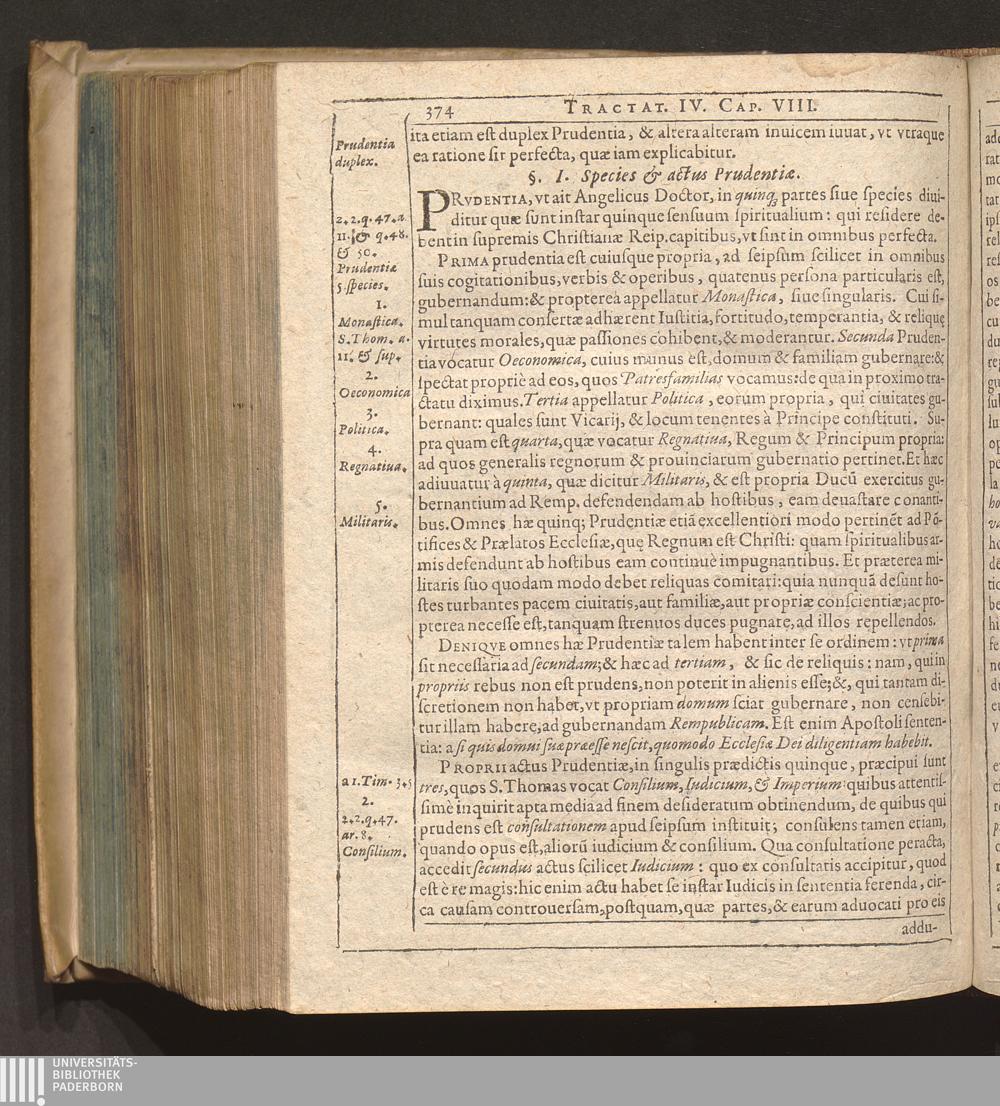 374
TRACTAT. IV. CAP. VIII.
Prudentia
duplex.
ita etiam eſt duplex Prudentia, & altera alteram inuicem iuuat, vt vtraque
ea ratione ſit perfecta, quæ iam explicabitur.
§. I. Species & actus Prudentiæ.
2.2.q.47.a
11. & q.48.
& 50.
Prudentiæ
5. ſpecies.
1.
Monaſtica.
S.Thom. a.
11. & ſup.
2.
Oeconomica
3.
Politica.
4.
Regnatiua.
5.
Militaris.
PRVDENTIA, vt ait Angelicus Doctor, in quinq; partes ſiue ſpecies diui-
ditur quæ ſunt inſtar quinque ſenſuum ſpiritualium: qui reſidere de-
bent in ſupremis Chriſtianæ Reip. capitibus, vt ſint in omnibus perfecta.
PRIMA prudentia eſt cuiuſque propria, ad ſeipſum ſcilicet in omnibus
ſuis cogitationibus, verbis & operibus, quatenus perſona particularis eſt,
gubernandum: & propterea appellatur Monaſtica, ſiue ſingularis. Cui ſi-
mul tanquam conſertæ adhærent Iuſtitia, fortitudo, temperantia, & reliquę
virtutes morales, quæ paſſiones cohibent, & moderantur. Secunda Pruden-
tia vocatur Oeconomica, cuius munus eſt, domum & familiam gubernare: &
ſpectat propriè ad eos, quos Patresfamilias vocamus: de qua in proximo tra-
ctatu diximus. Tertia appellatur Politica, eorum propria, qui ciuitates gu-
bernant: quales ſunt Vicarij, & locum tenentes à Principe conſtituti. Su-
pra quam eſt quarta, quæ vocatur Regnatiua, Regum & Principum propria:
ad quos generalis regnorum & prouinciarum gubernatio pertinet. Et hæc
adiuuatur à quinta, quæ dicitur Militaris, & eſt propria Ducū exercitus gu-
bernantium ad Remp. defendendam ab hoſtibus, eam deuaſtare conanti-
bus. Omnes hæ quinq; Prudentiæ etiā excellentiori modo pertinēt ad Pō-
tifices & Prælatos Eccleſiæ, quę Regnum eſt Chriſti: quam ſpiritualibus ar-
mis defendunt ab hoſtibus eam continuè impugnantibus. Et præterea mi-
litaris ſuo quodam modo debet reliquas comitari: quia nunquā deſunt ho-
ſtes turbantes pacem ciuitatis, aut familiæ, aut propriæ conſcientiæ; ac pro-
pterea neceſſe eſt, tanquam ſtrenuos duces pugnare, ad illos repellendos.
DENIQVE omnes hæ Prudentiæ talem habent inter ſe ordinem: vt prima
ſit neceſſaria ad ſecundam; & hæc ad tertiam, & ſic de reliquis: nam, qui in
propriis rebus non eſt prudens, non poterit in alienis eſſe; &, qui tantam di-
ſcretionem non habet, vt propriam domum ſciat gubernare, non cenſebi-
tur illam habere, ad gubernandam Rempublicam. Eſt enim Apoſtoli ſenten-
tia: a ſi quis domui ſuæ præeſſe neſcit, quomodo Eccleſiæ Dei diligentiam habebit.
a 1. Tim. 3.5
2.
2.2.q.47.
ar. 8.
Conſilium.
PROPRII actus Prudentiæ, in ſingulis prædictis quinque, præcipui ſunt
tres, quos S. Thomas vocat Conſilium, Iudicium, & Imperium: quibus attentiſ-
ſimè inquirit apta media ad finem deſideratum obtinendum, de quibus qui
prudens eſt conſultationem apud ſeipſum inſtituit; conſulens tamen etiam,
quando opus eſt, aliorū iudicium & conſilium. Qua conſultatione peracta,
accedit ſecundus actus ſcilicet Iudicium: quo ex conſultatis accipitur, quod
eſt è re magis: hic enim actu habet ſe inſtar Iudicis in ſententia ferenda, cir-
ca cauſam controuerſam, poſtquam, quæ partes, & earum aduocati pro eis
addu-
UNIVERSITÄTS-
BIBLIOTHEK
PADERBORN